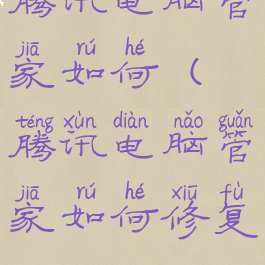 腾讯电脑管
jiā rú hé
家如何（
téng xùn diàn nǎo guǎn
腾讯电脑管
jiā rú hé xiū fù
家如何修复